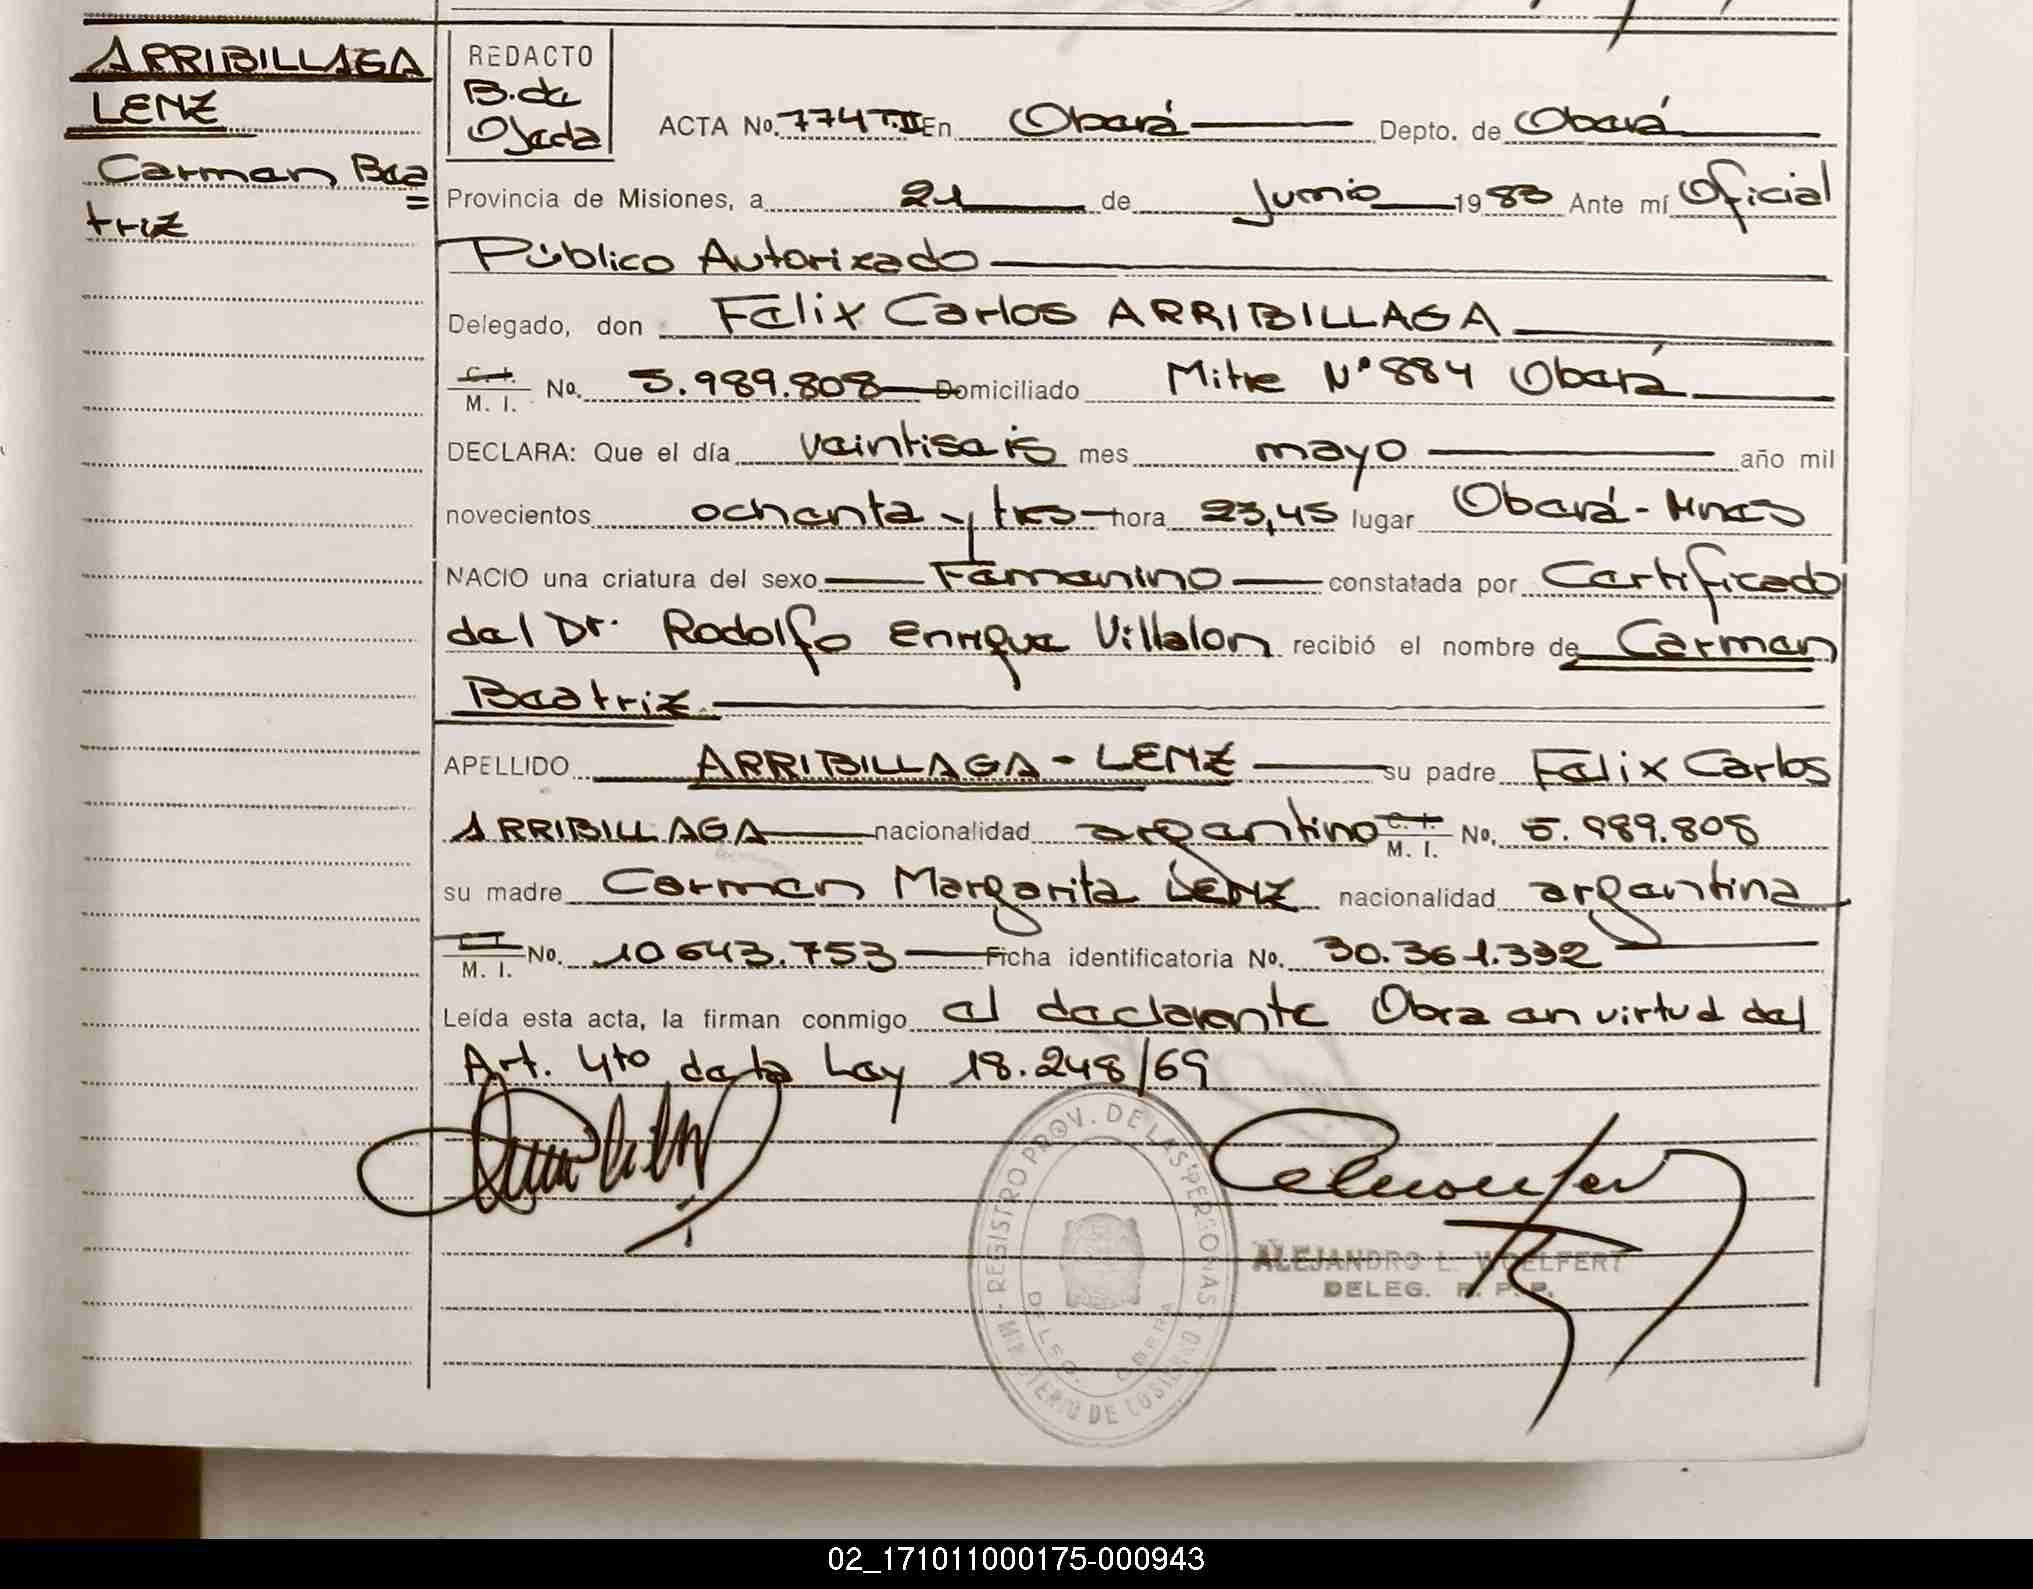 ARRIBILLAGA
LENZ
Carmen Bea=
triz
REDACTO
B. de
Ojeda
ACTA No. 774 T.II En Oberá Depto. de Oberá
Provincia de Misiones, a 21 de Junio 1983 Ante mí Oficial
Público Autorizado
Delegado, don Felix Carlos ARRIBILLAGA
C. I.
M. I. No. 5.989.808 Domiciliado Mitre Nº 884 Oberá
DECLARA: Que el día veintiseis mes mayo año mil
novecientos ochenta y tres hora 23,45 lugar Oberá - Mnes
NACIO una criatura del sexo Femenino constatada por Certificado
del Dr. Rodolfo Enrique Villalon recibió el nombre de Carmen
Beatriz
APELLIDO ARRIBILLAGA - LENZ su padre Felix Carlos
ARRIBILLAGA nacionalidad argentino C. I. M. I. No. 5.989.808
su madre Carmen Margarita LENZ nacionalidad argentina
C. I.
M. I. No. 10 643.753 Ficha identificatoria No. 30.361.332
Leída esta acta, la firman conmigo el declarante Obra en virtud del
Art. 4to de la Ley 18.248/69
REGISTRO PROV. DE LAS PERSONAS
MINISTERIO DE GOBIERNO
DELEG. OBERA
ALEJANDRO L. WOELFERT
DELEG. R. P. P.
02_171011000175-000943